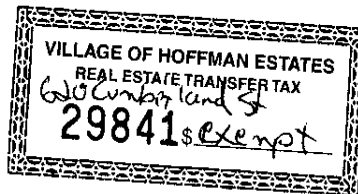 VILLAGE OF HOFFMAN ESTATES
REAL ESTATE TRANSFER TAX
620 Cumberland St
29841 $ exempt